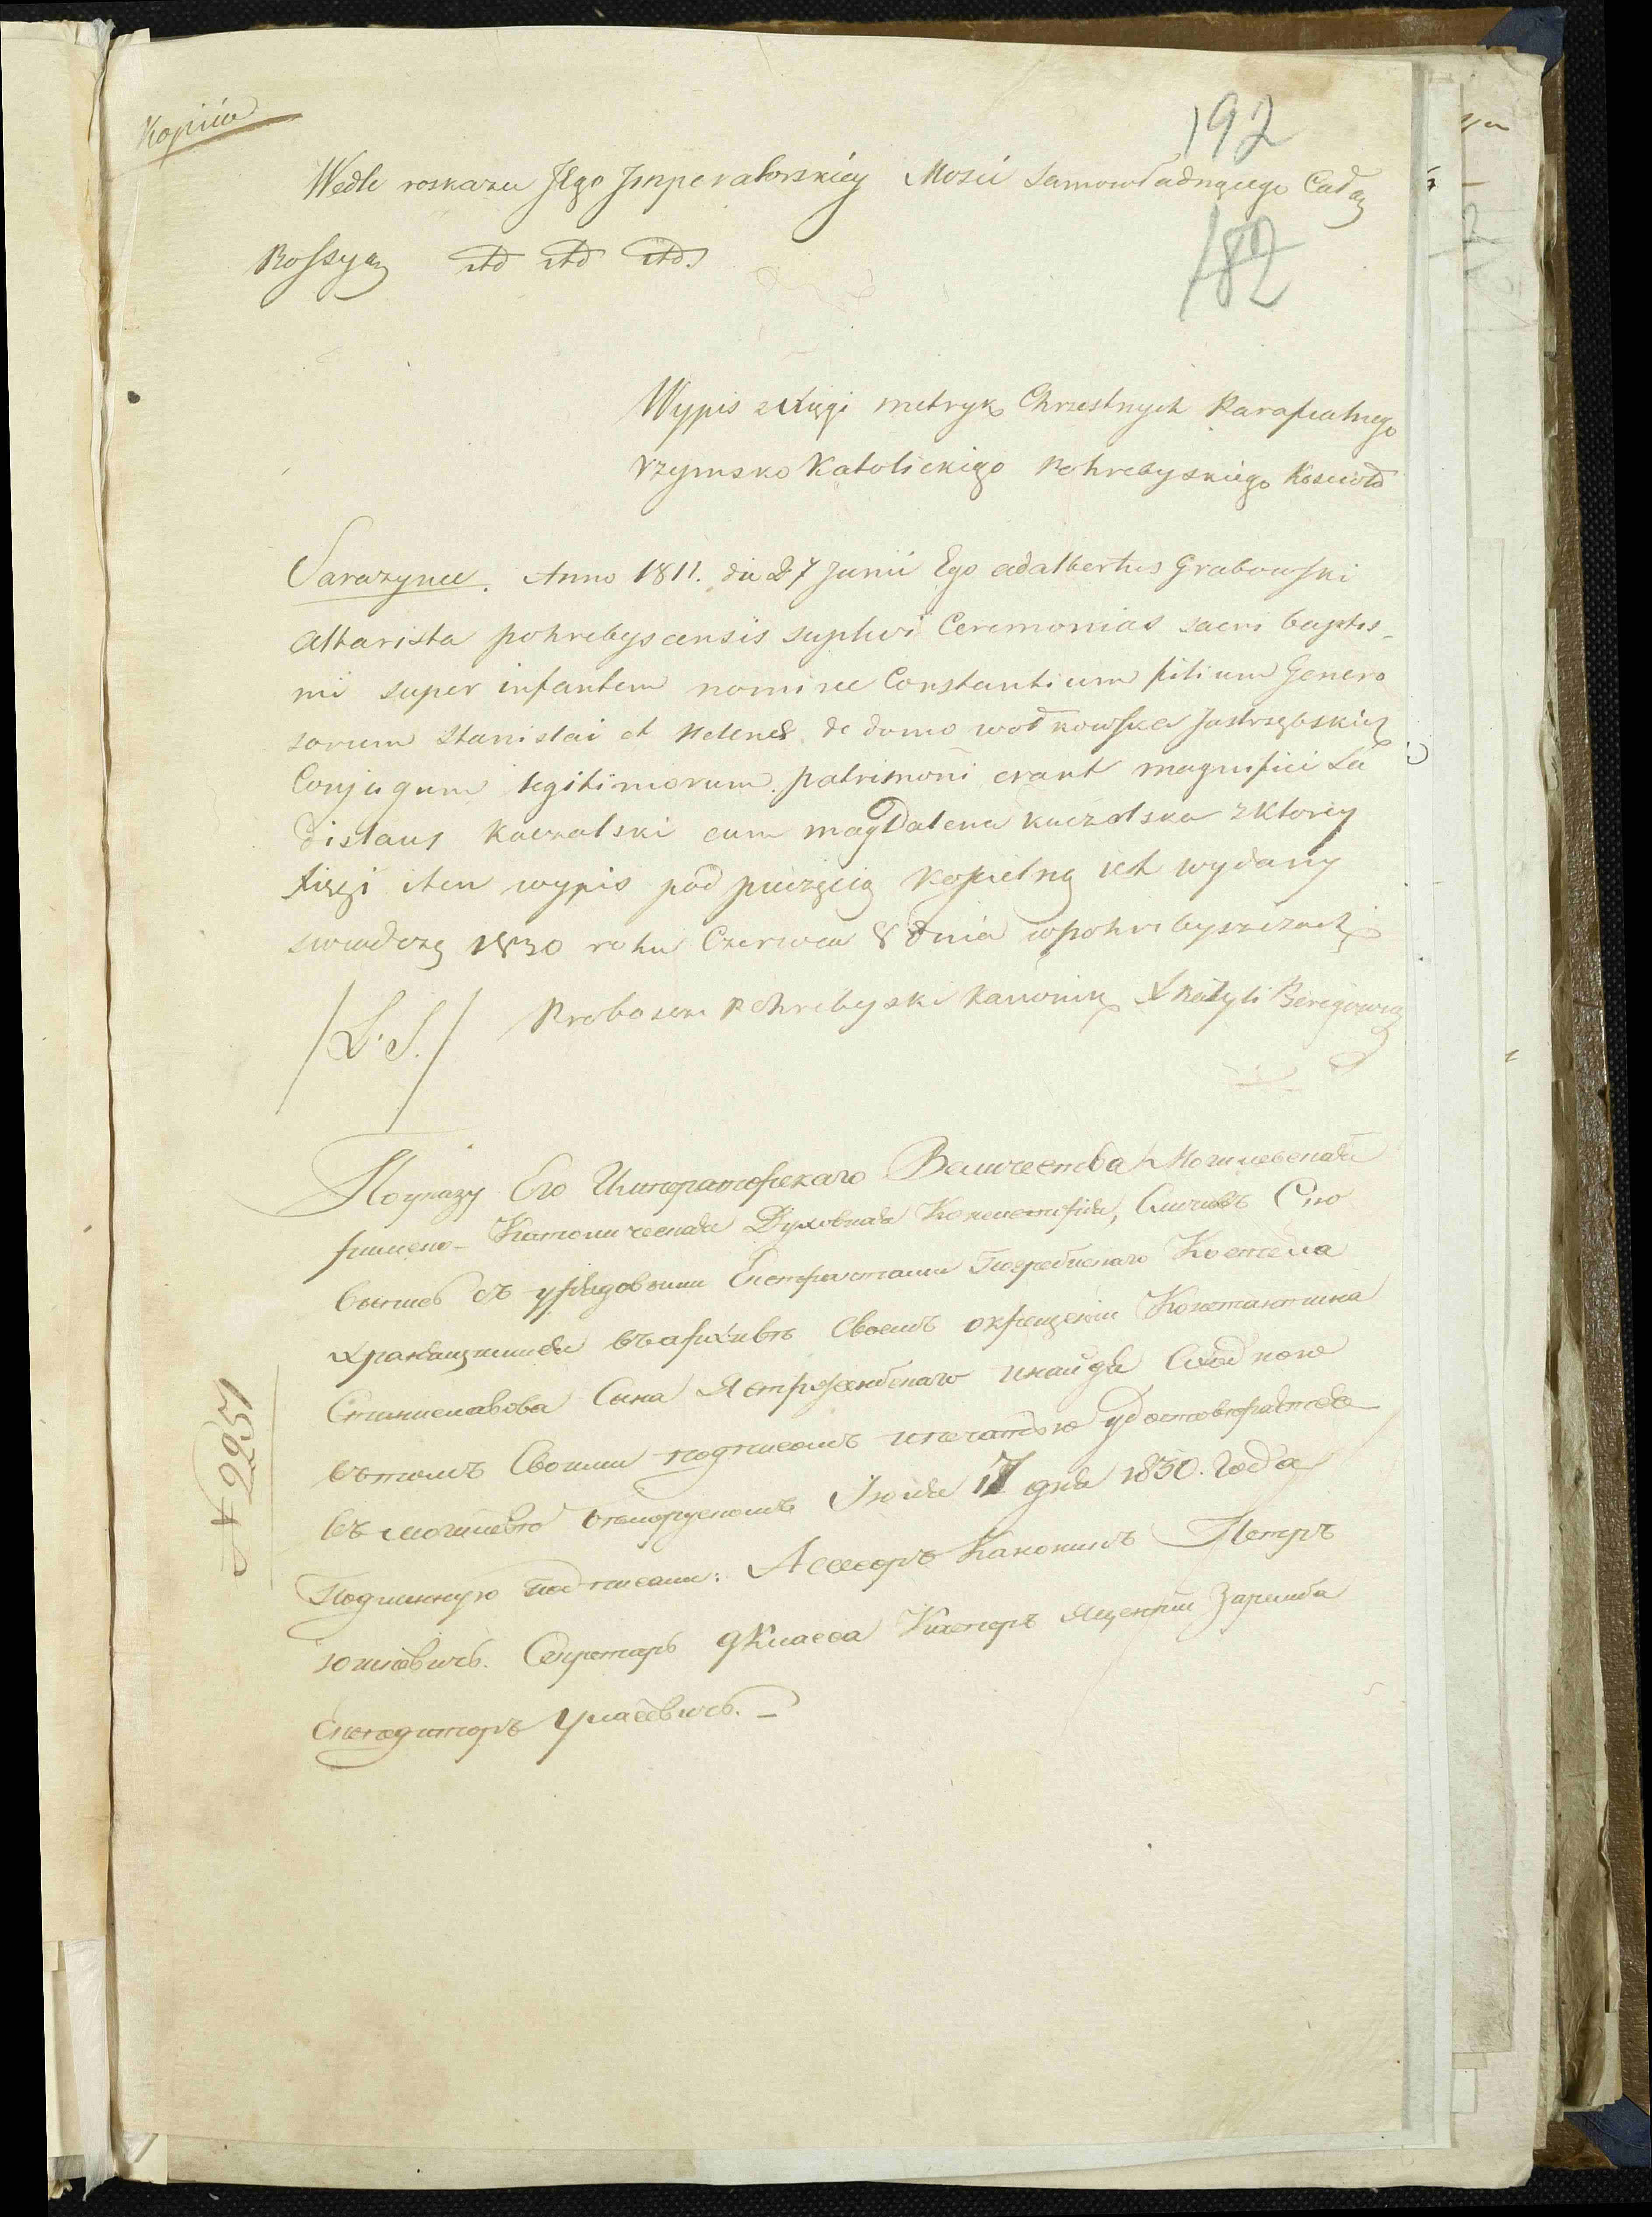 Kopiia
192
Wedle roskazu Jego Jmperatorskiey Mosci Samowładnącego Całą
Rossyą etd etd etd.
182
Wypis z Xięgi metryk Chrzestnych Parafialnego
rzymsko Katolickiego Pohrebyskiego Koscioła
Sarazynce. Anno 1811. die 27 Junii Ego adalbertus Grabowski
Altarista pohrebyscensis suplevi Ceremonias sacri baptis-
mi super infantem nomine Constantium filium Genero
sorum Stanislai et Helene de domo wołkowska Jastrzębskich
Conjugum legitimorum. patrimoni erant magnifici La
dislaus Kaczalski cum magdalena kaczalska z Ktorey
Xięgi iten wypis pod pieczęcią Kościelną iest wydany
swiadczę 1830 roku Czerwca 8 dnia w pohrebyszczach
/L. S./ Proboszcz Pohrebyski Kanonik X
По указу Его Императорскаго Величества Могилевская
римско-Католическая Духовная Консисторія, Сличивъ Сію
выпись съ урядовыми Екстрактами Погребискаго Костела
хранящимися въ архивѣ своемъ о крещеніи Константина
Станиславова Сына Ястржембскаго и найдя Сходною
въ томъ Своимъ подписомъ и печатью удостовѣряетъ
въ могилевѣ бѣлорускомъ Іюля 17 дня 1830. Года
Подлинную подписали: Ассесоръ Каноникъ Петръ
Секретарь 9 Класса Яцентій Заремба
Експедиторъ
№ 2251